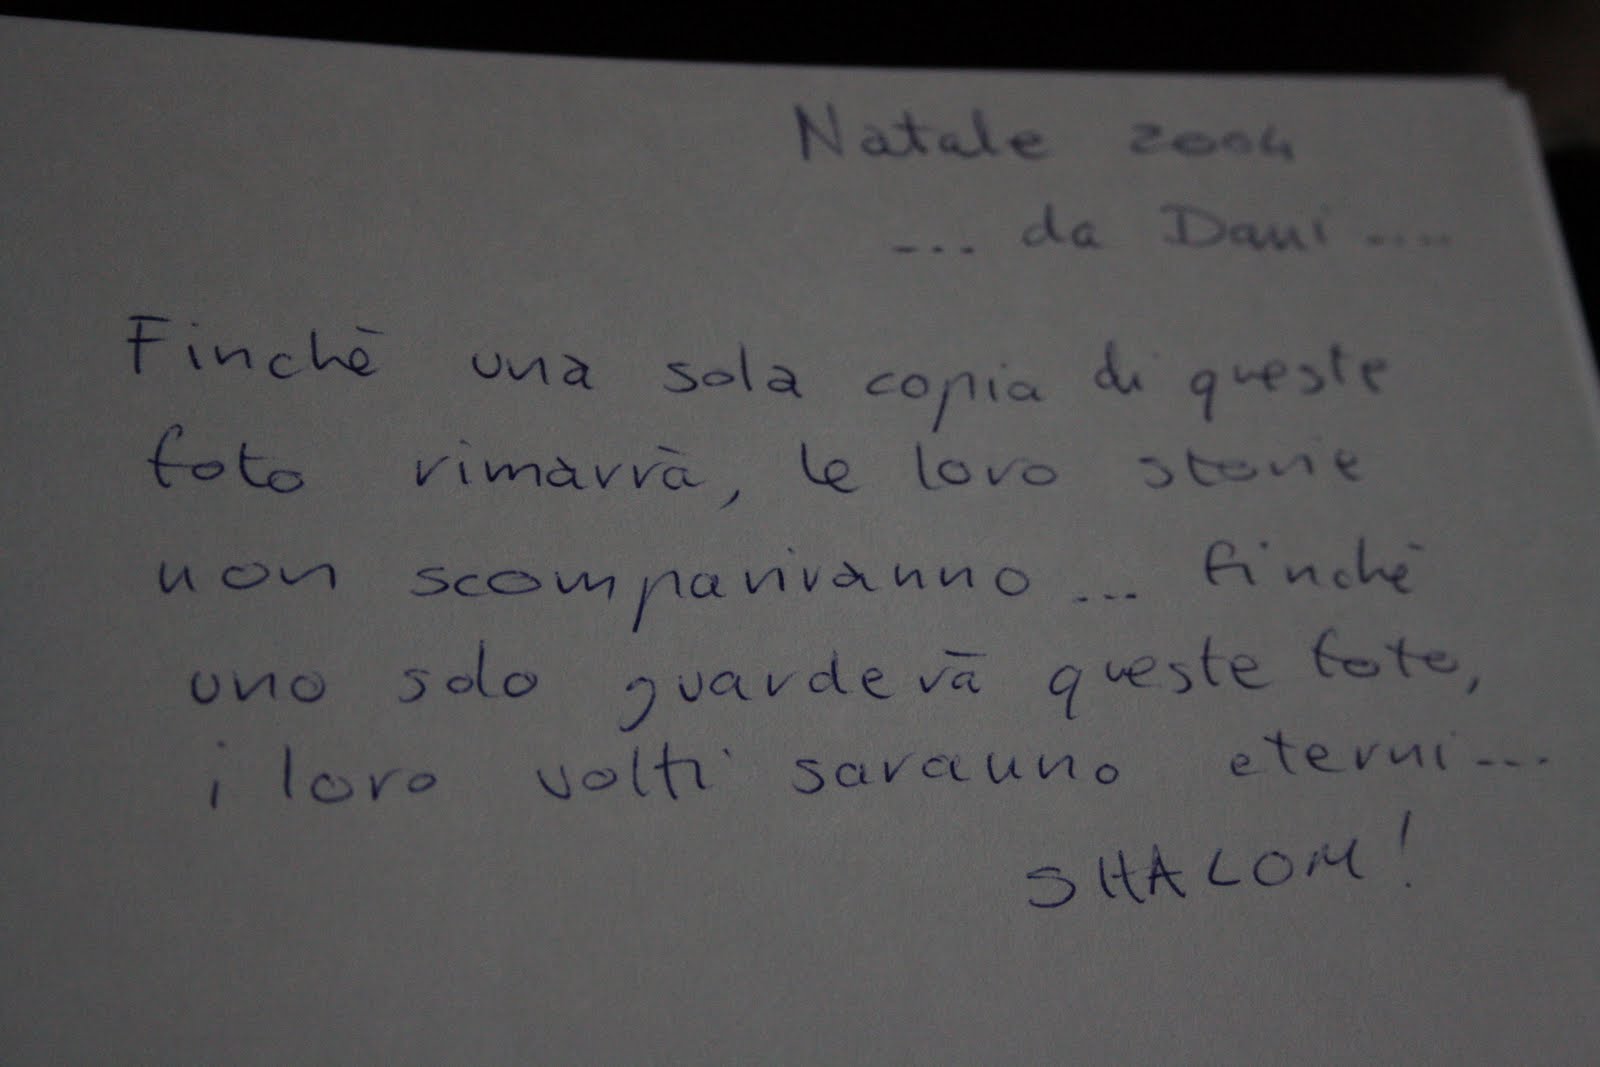 Natale 2004
... da Dani ....
Finchè una sola copia di queste
foto rimarrà, le loro storie
non scompariranno ... finchè
uno solo guarderà queste foto,
i loro volti saranno eterni ...
SHALOM!